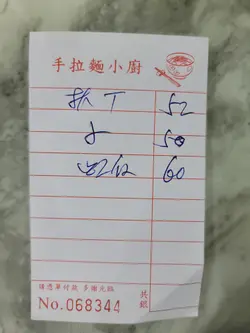 手拉麵小廚
丁 52
50
60
請憑單付款 多謝光顧
共銀
No.068344